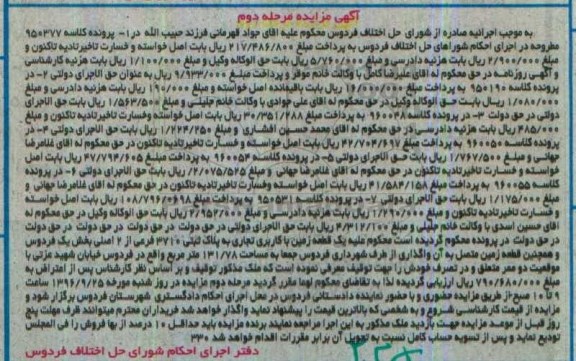 آگهی مزایده مرحله دوم
به موجب اجرائیه صادره از شورای حل اختلاف فردوس محکوم علیه آقای جواد قهرمانی فرزند حبیب الله در ۱- پرونده کلاسه ۹۵۰۳۷۷
مطروحه در اجرای احکام شوراهای حل اختلاف فردوس به پرداخت مبلغ ۲۱۷/۴۸۶/۸۰۰ ریال بابت اصل خواسته و خسارت تاخیرتادیه تاکنون و
مبلغ ۲/۹۰۰/۰۰۰ ریال بابت هزینه دادرسی و مبلغ ۵/۷۶۰/۰۰۰ ریال بابت حق الوکاله وکیل و مبلغ ۱/۱۰۰/۰۰۰ ریال بابت هزینه کارشناسی
و آگهی روزنامه در حق محکوم له آقای علیرضا کامل با وکالت خانم موقر و پرداخت مبلغ ۹/۹۳۳/۰۰۰ ریال به عنوان حق الاجرای دولتی ۲- در
پرونده کلاسه ۹۵۰۱۹۰ به پرداخت مبلغ ریال بابت باقیمانده اصل خواسته و مبلغ ریال بابت هزینه دادرسی و مبلغ
۱/۰۸۰/۰۰۰ ریال بابت حق الوکاله وکیل در حق محکوم له آقای علی جوادی با وکالت خانم جلیلی و مبلغ ۱/۵۶۳/۵۰۰ ریال بابت حق الاجرای
دولتی در حق دولت ۳- در پرونده کلاسه ۹۶۰۰۴۸ به پرداخت مبلغ ۳۰/۳۵۱/۲۸۸ ریال بابت اصل خواسته وخسارت تاخیرتادیه تاکنون و مبلغ
۴۸۵/۰۰۰ ریال بابت هزینه دادرسی در حق محکوم له آقای محمد حسین افشاری و مبلغ ۱/۲۲۴/۲۵۰ ریال بابت حق الاجرای دولتی ۴- در
پرونده کلاسه ۹۶۰۰۵۰ به پرداخت مبلغ ۴۲/۷۰۴/۶۹۲ ریال بابت اصل خواسته و خسارت تاخیرتادیه تاکنون در حق محکوم له آقای غلامرضا
جهانی و مبلغ ۱/۷۶۷/۵۰۰ ریال بابت حق الاجرای دولتی ۵- در پرونده کلاسه ۹۶۰۰۵۴ به پرداخت مبلغ ۴۷/۷۹۴/۶۰۵ ریال بابت اصل
خواسته و خسارت تاخیرتادیه تاکنون در حق محکوم له آقای غلامرضا جهانی و مبلغ ۲/۰۷۵/۵۲۵ ریال بابت حق الاجرای دولتی ۶- در پرونده
کلاسه ۹۶۰۰۵۵ به پرداخت مبلغ ۴۱/۵۸۴/۱۵۸ ریال بابت اصل خواسته وخسارت تاخیرتادیه تاکنون در حق محکوم له آقای غلامرضا جهانی و
مبلغ ۱/۱۷۵/۰۰۰ ریال بابت حق الاجرای دولتی ۷- در پرونده کلاسه ۹۵۰۵۳۱ به پرداخت مبلغ ریال بابت اصل خواسته
و خسارت تاخیرتادیه تاکنون و مبلغ ۱/۲۹۰/۰۰۰ ریال بابت هزینه دادرسی و مبلغ ۲/۹۵۲/۰۰۰ ریال بابت حق الوکاله وکیل در حق محکوم له
آقای حسین اسدی با وکالت خانم جلیلی و مبلغ ۴/۳۱۲/۱۰۰ ریال بابت حق الاجرای دولتی در حق دولت در حق دولت در حق دولت
در حق دولت در پرونده محکوم گردیده است محکوم علیه یک قطعه زمین با کاربری تجاری به پلاک ثبتی ۳۷۱۰ فرعی از ۲ اصلی بخش یک فردوس
و همچنین قطعه زمین متصل به آن واگذاری از طرف شهرداری فردوس جمعا به مساحت ۱۳۱/۷۸ متر مربع واقع در فردوس خیابان شهید عزتی با
موقعیت دو ممر متعلق و در تصرف خودش را جهت توقیف معرفی نموده است که ملک مذکور توقیف و بر اساس نظر کارشناس پس از اعتراض به
مبلغ ۷۹۰/۶۸۰/۰۰۰ ریال ارزیابی گردیده لذا به تقاضای محکوم لهما مقرر گردید مرحله دوم مزایده در روز شنبه مورخه ۱۳۹۶/۹/۲۵ ساعت
۹ تا ۱۰ صبح از طریق مزایده حضوری و با حضور نماینده دادستانی فردوس در محل اجرای احکام دادگستری شهرستان فردوس برگزار شود و
مزایده از قیمت کارشناسی شروع و به شخصی که بالاترین قیمت را پیشنهاد نماید واگذار خواهد شد خریداران محترم میتوانند ظرف مهلت پنج
روز قبل از موعد مزایده جهت بازدید ملک مذکور به این اجرا مراجعه نمایند برنده مزایده باید حداقل ۱۰ درصد از بها فروش را فی المجلس
تودیع نماید و پس از تسویه حساب کامل نسبت به تحویل آن برابر مقررات اقدام خواهد شد ۳۳۰
دفتر اجرای احکام شورای حل اختلاف فردوس